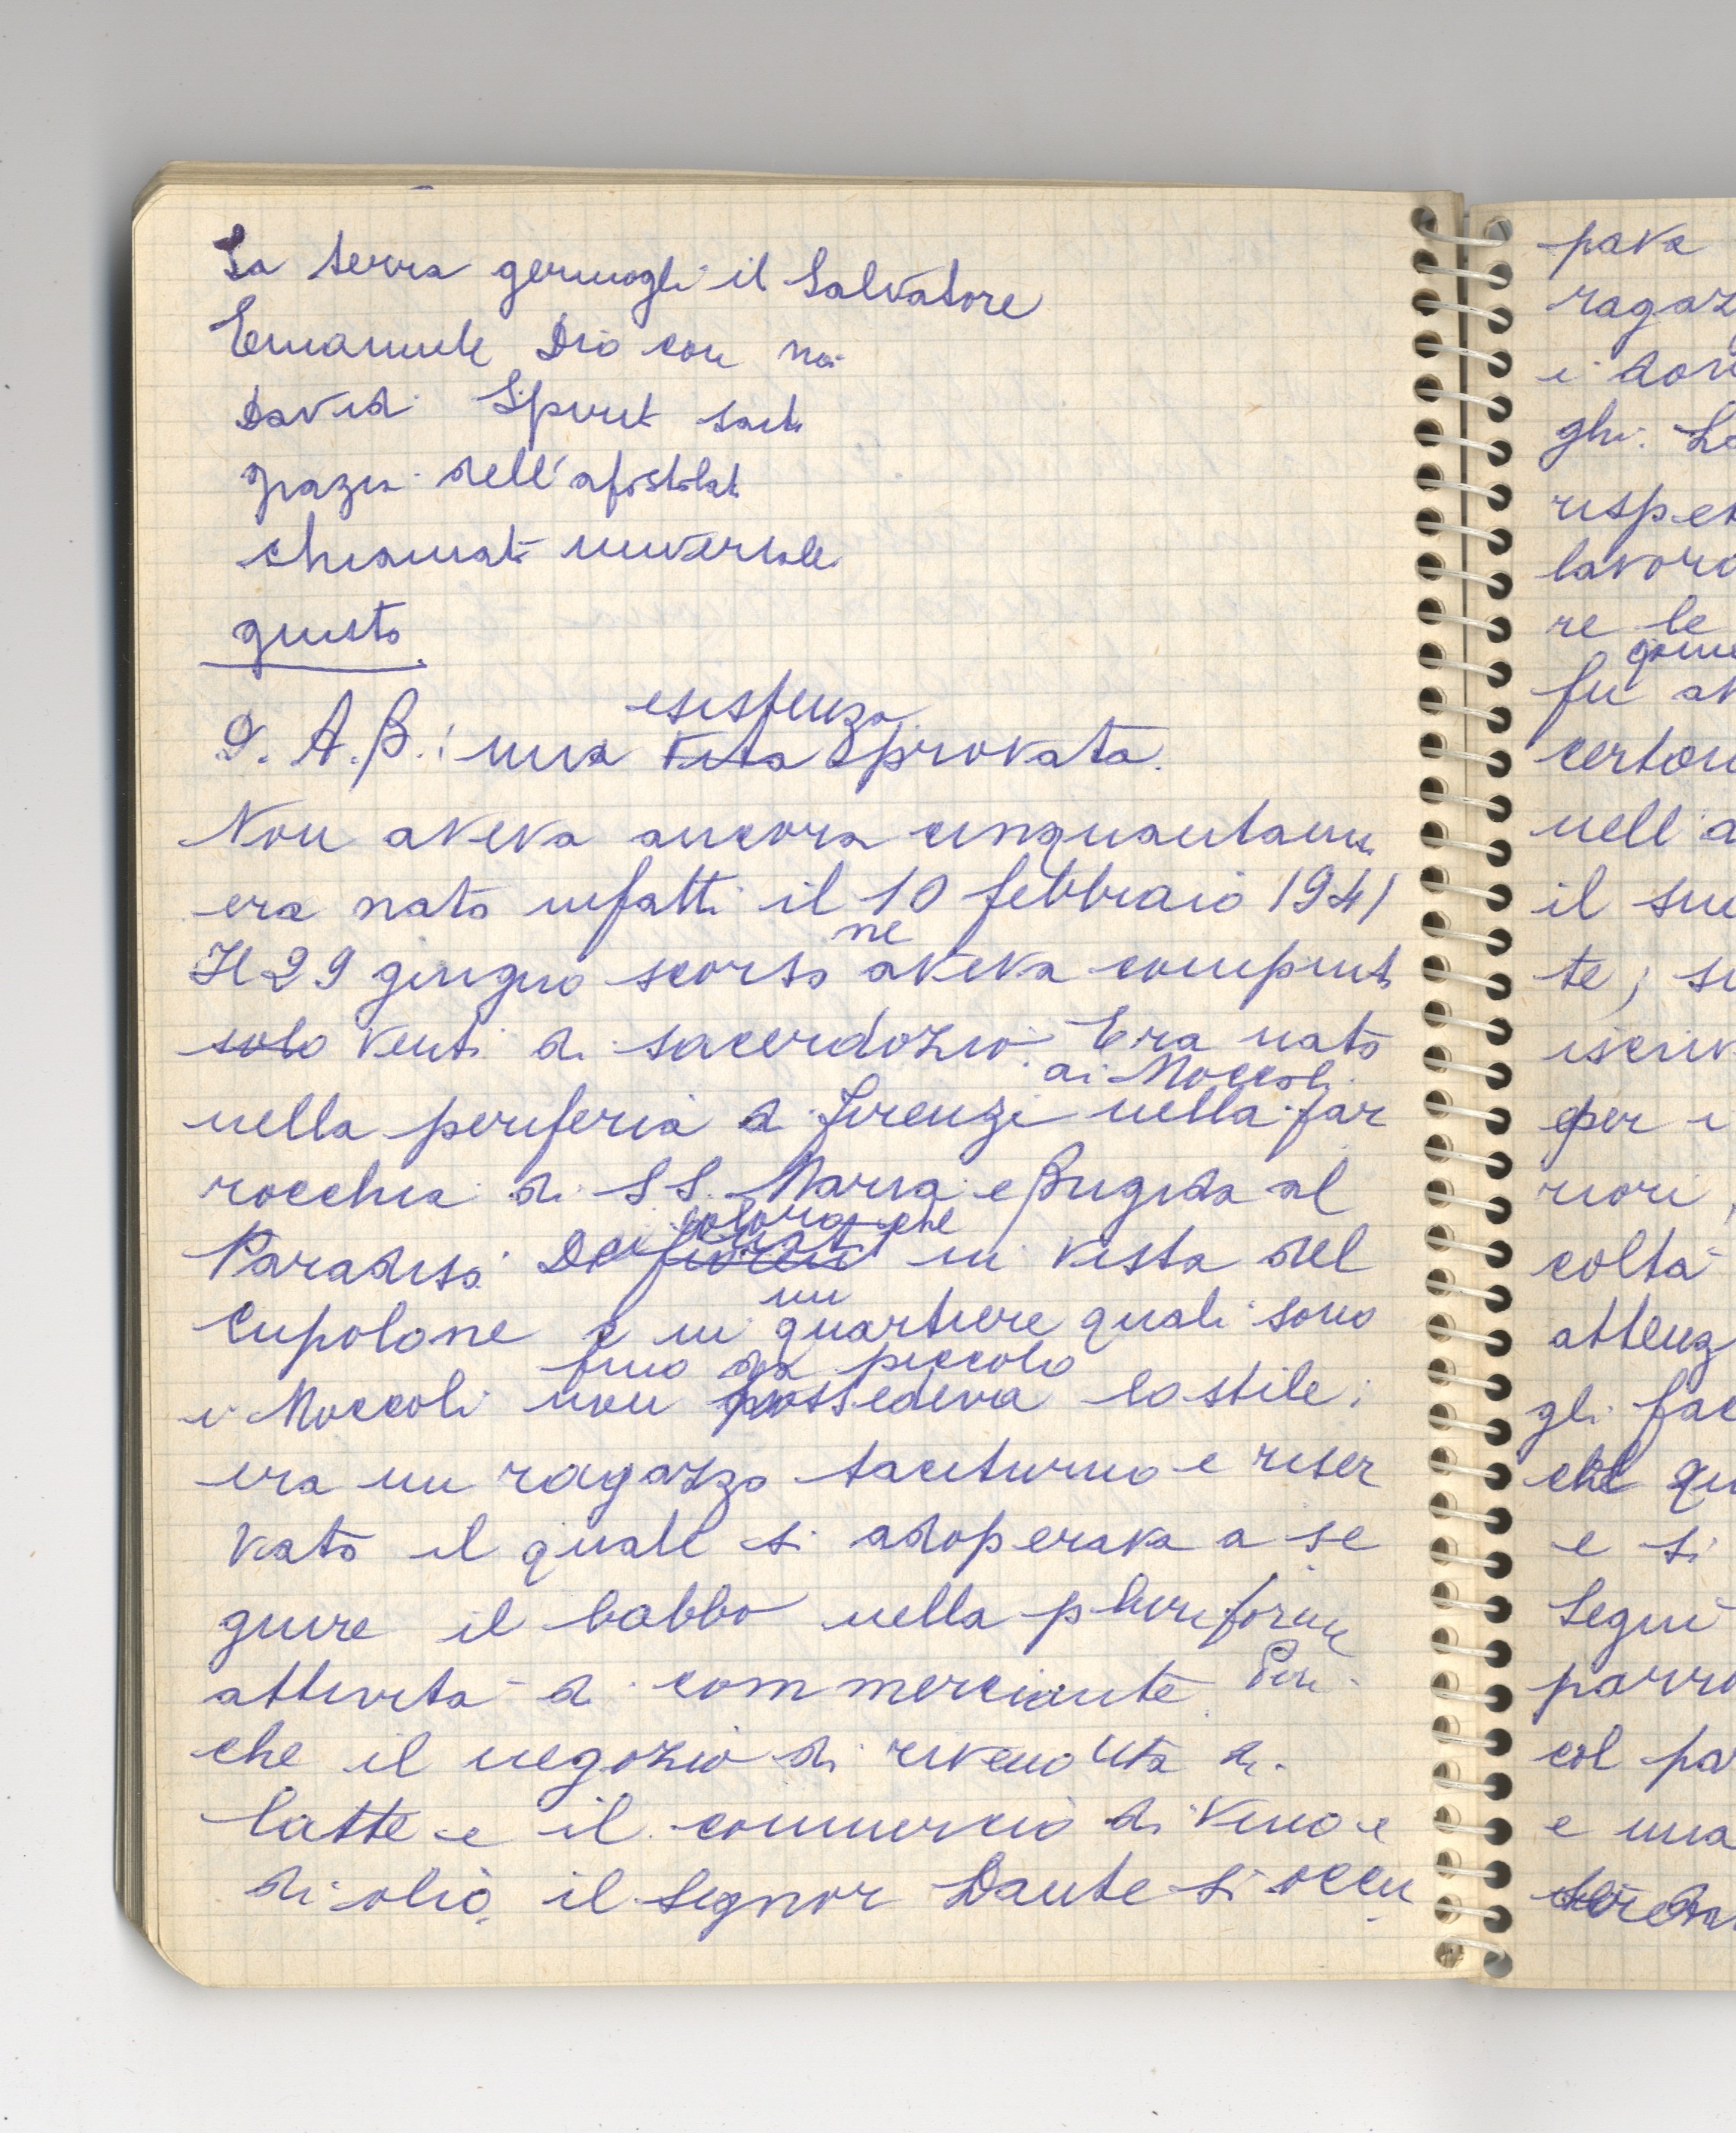 La terra germogli il Salvatore
Emanuele Dio con noi
David Spirit sant
grazia dell'apostolat
chiamat universale
giusto
G. A. B.: una vita provata.
esistenza
Non aveva ancora cinquantanni
era nato infatti il 10 febbraio 1941
Il 29 giugno scorso aveva compiut
ne
solo venti di sacerdozio. Era nato
ai Moccoli
nella periferia di Firenze nella par
rocchia di SS. Maria e Brigida al
Paradiso. Dei fiorentini in vista del
che
Cupolone e in quartiere quali sono
un
fino da piccolo
i Moccoli non possedeva lo stile;
era un ragazzo taciturno e riser
vato il quale si adoperava a se
guire il babbo nella pluriforme
attività di commerciante. Per
che il negozio di rivendita di
latte e il commercio di vino e
di olio, il Signor Dante si occu
pava
ragaz
i
ghi. Le
rispet
lavoro
re le
fu
certou
nell'a
il suo
te; su
iscriv
per i
riori
coltà
attenz
gli fac
che qu
e si
Seguì
parro
col pa
e una